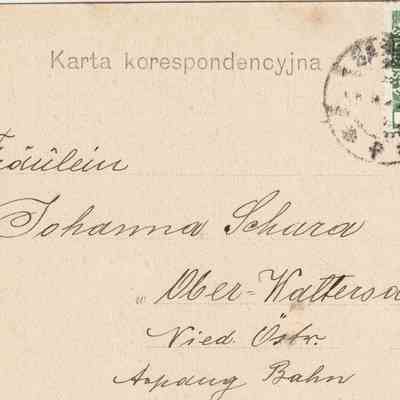 Karta korespondencyjna
Fräulein
Johanna Schara
Ober-Waltersd
Nied. Östr.
Aspang Bahn